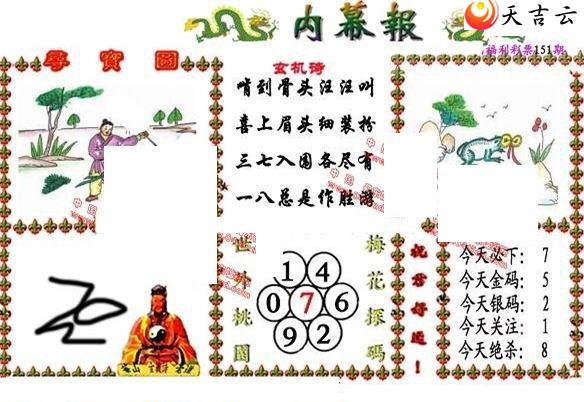 内幕報
天吉云
福利彩票151期
尋寶圖
玄机诗
啃到骨头汪汪叫
喜上眉头细装扮
三七入围各尽有
一八总是作胜游
世外桃園
1 4
0 7 6
9 2
梅花探碼
祝君好运！
今天必下：7
今天金码：5
今天银码：2
今天关注：1
今天绝杀：8